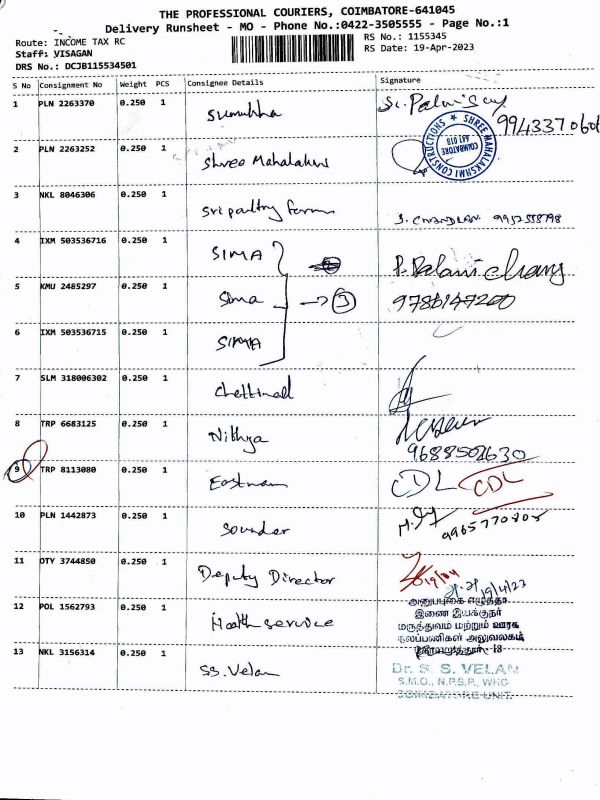 THE PROFESSIONAL COURIERS, COIMBATORE-641045
Delivery Runsheet - MO - Phone No.:0422-3505555 - Page No.:1
Route: INCOME TAX RC
RS No.: 1155345
Staff: VISAGAN
RS Date: 19-Apr-2023
DRS No.: DCJB115534501
S No Consignment No Weight PCS Consignee Details Signature
1 PLN 2263370 0.250 1
9943370606
2 PLN 2263252 0.250 1 Shree Mahalakshmi
SHREE MAHALAKSHMI CONSTRUCTIONS
COIMBATORE
641 018
3 NKL 8046306 0.250 1 Sri poultry farm
4 IXM 503536716 0.250 1 SIMA
5 KMU 2485297 0.250 1 Sima → 3
9786147200
6 IXM 503536715 0.250 1 SIMA
7 SLM 318006302 0.250 1 Chettinad
8 TRP 6683125 0.250 1 Nithya
9688502630
9 TRP 8113080 0.250 1 Eastman CDL CDL
10 PLN 1442873 0.250 1 Sounder
9965770805
11 OTY 3744850 0.250 1 Deputy Director 19/04
19/4/23
12 POL 1562793 0.250 1 Health service
இணை இயக்குநர்
மருத்துவம் மற்றும் ஊரக
நலப்பணிகள் அலுவலகம்
13 NKL 3156314 0.250 1 SS. Velan
Dr. S. S. VELAN
S.M.O., N.P.S.P., WHO
COIMBATORE UNIT.